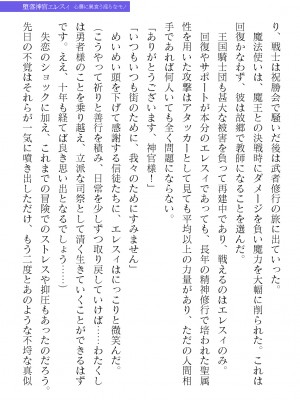 堕落神官エレスィ 心臓に巣食う淫らなモノ
り、戦士は祝勝会で騒いだ後は武者修行の旅に出ていった。
魔法使いは、魔王との決戦時にダメージを負い魔力を大幅に削られた。これは
回復かなわず、彼は故郷で教師になることを選んだ。
王国騎士団も甚大な被害を負って再建中であり、戦えるのはエレスィのみ。
回復やサポートが本分のエレスィであっても、長年の精神修行で培われた聖属
性を用いた攻撃はアタッカーとして見ても平均以上の力量があり、ただの人間相
手であれば何人いても全く問題にならない。
「ありがとうございます、神官様！」
「いつもいつも街のために、我々のためにすみません」
めいめい頭を下げて感謝する信徒たちに、エレスィはにっこりと微笑んだ。
（こうやって祈りと善行を積み、日常を少しずつ取り戻していけば……わたくし
は勇者様のことを乗り越え、立派な司祭として清く生きていくことができるはず
です。ええ、十年も経てば良き思い出となるでしょう……）
失恋のショックに加え、これまでの冒険でのストレスや抑圧もあったのだろう。
先日の不覚はそれらが一気に噴き出しただけ、もう二度とあのような不埒な真似